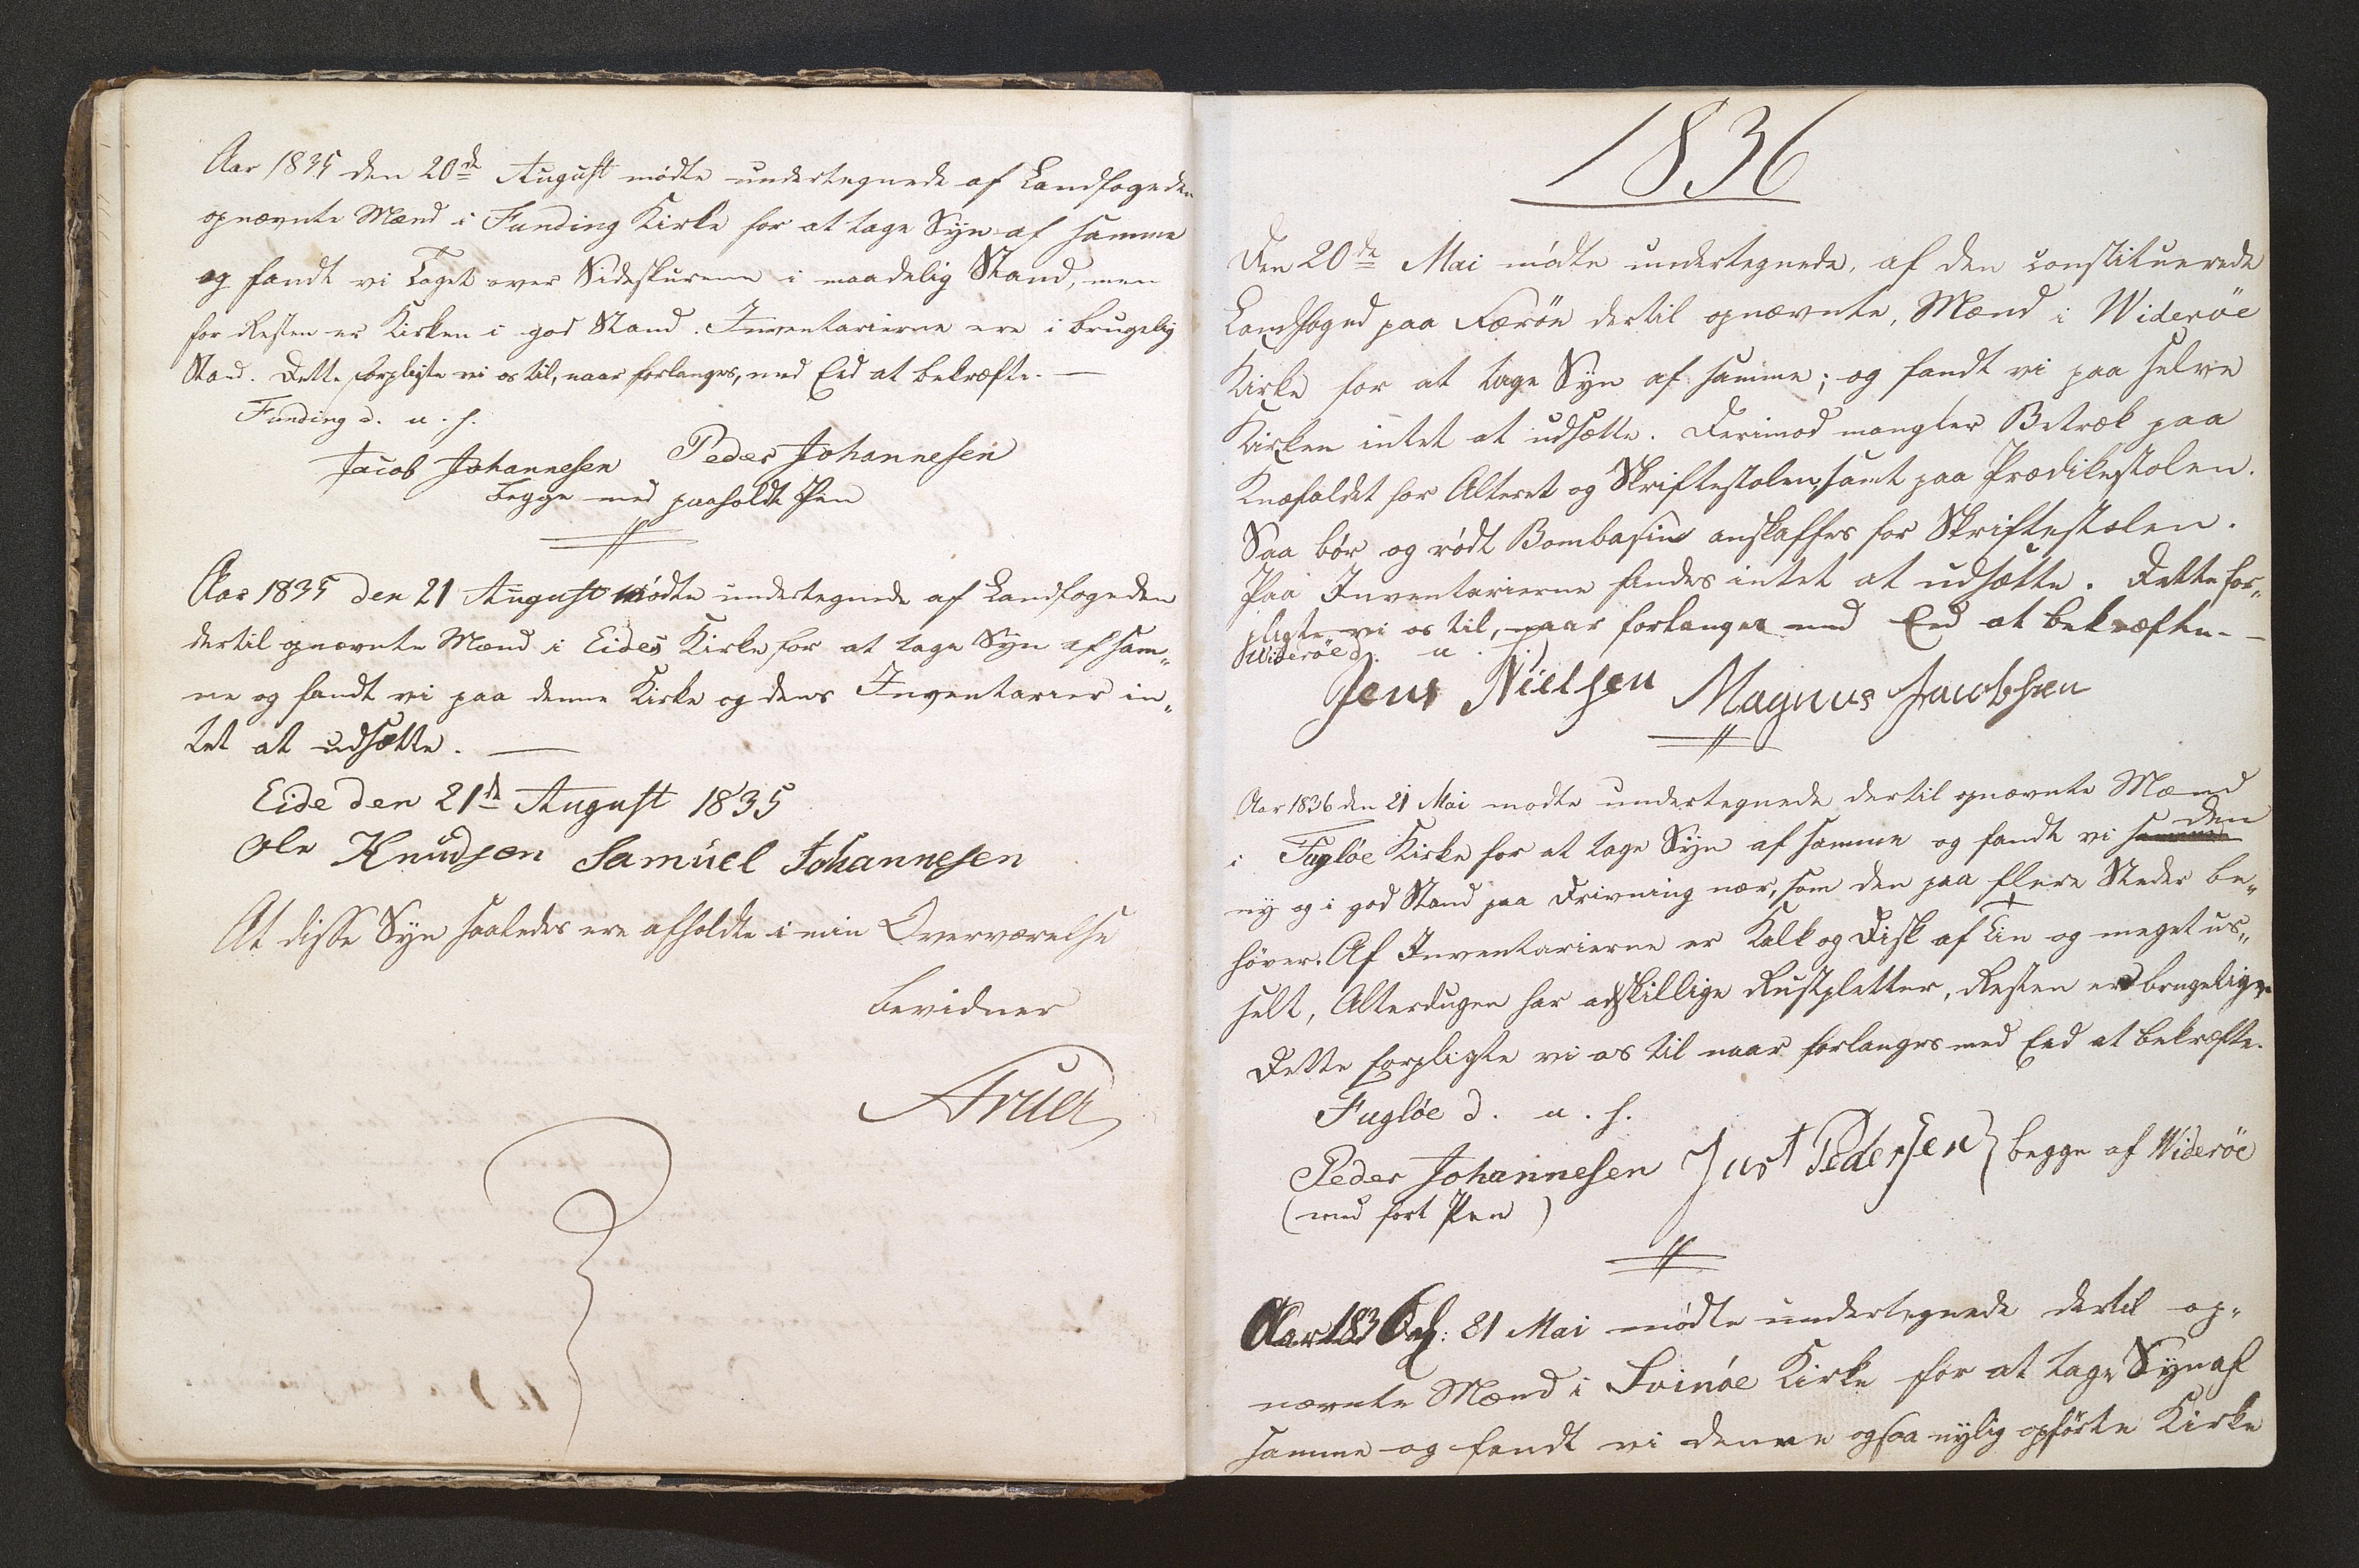 Aar 1835 den 20de August mødte undertegnede af Landfogeden
opnævnte Mænd i Funding Kirke for at tage Syn af samme
og fandt vi Taget over Sideskurene i maadelig Stand, men
for Resten er Kirken i god Stand. Inventarierne ere i brugelig
Stand. Dette forpligte vi os til, naar forlanges, med Eed at bekræfte. —
Funding d. u. s.
Jacob Johannesen Peder Johannesen
begge med paaholdt Pen
Aar 1835 den 21 August mødte undertegnede af Landfogeden
dertil opnævnte Mænd i Eides Kirke for at tage Syn af sam„
me og fandt vi paa denne Kirke og dens Inventarier in„
tet at udsætte. —
Eide den 21de August 1835
Ole Knudsen Samuel Johannesen
At disse Syn saaledes ere afholdte i min Overværelse
bevidner
1836
Den 20de Mai mødte undertegnede, af den constituerede
Landfoged paa Færöe dertil opnævnte, Mænd i Wideröe
Kirke for at tage Syn af samme; og fandt vi paa selve
Kirken intet at udsætte. Derimod mangler Betræk paa
Knæfaldet for Alteret og Skriftestolen, samt paa Prædikestolen.
Saa bør og rødt Bombasin anskaffes for Skriftestolen.
Paa Inventarierne findes intet at udsætte. Dette for„
pligte vi os til, naar forlanges med Eed at bekræfte. —
Wideröe d. u. s.
Jens Nielsen Magnus Jacobsen
Aar 1836 den 21 Mai mødte undertegnede dertil opnævnte Mænd
i Fugløe Kirke for at tage Syn af samme og fandt vi samme den
ny og i god Stand paa Drivning nær, som den paa flere Steder be„
høver. Af Inventarierne er Kalk og Disk af Tin og meget us„
selt, Alterdugen har adskillige Rustpletter, Resten er brugelige.
Dette forpligte vi os til naar forlanges med Eed at bekræfte.
Fugløe d. u. s.
Peder Johannesen Just Pedersen } begge af Wideröe
(med ført Pen)
Aar 1836 d: 21 Mai mødte undertegnede dertil op„
nævnte Mænd i Svinøe Kirke for at tage Syn af
samme og fandt vi denne ogsaa nylig opførte Kirke